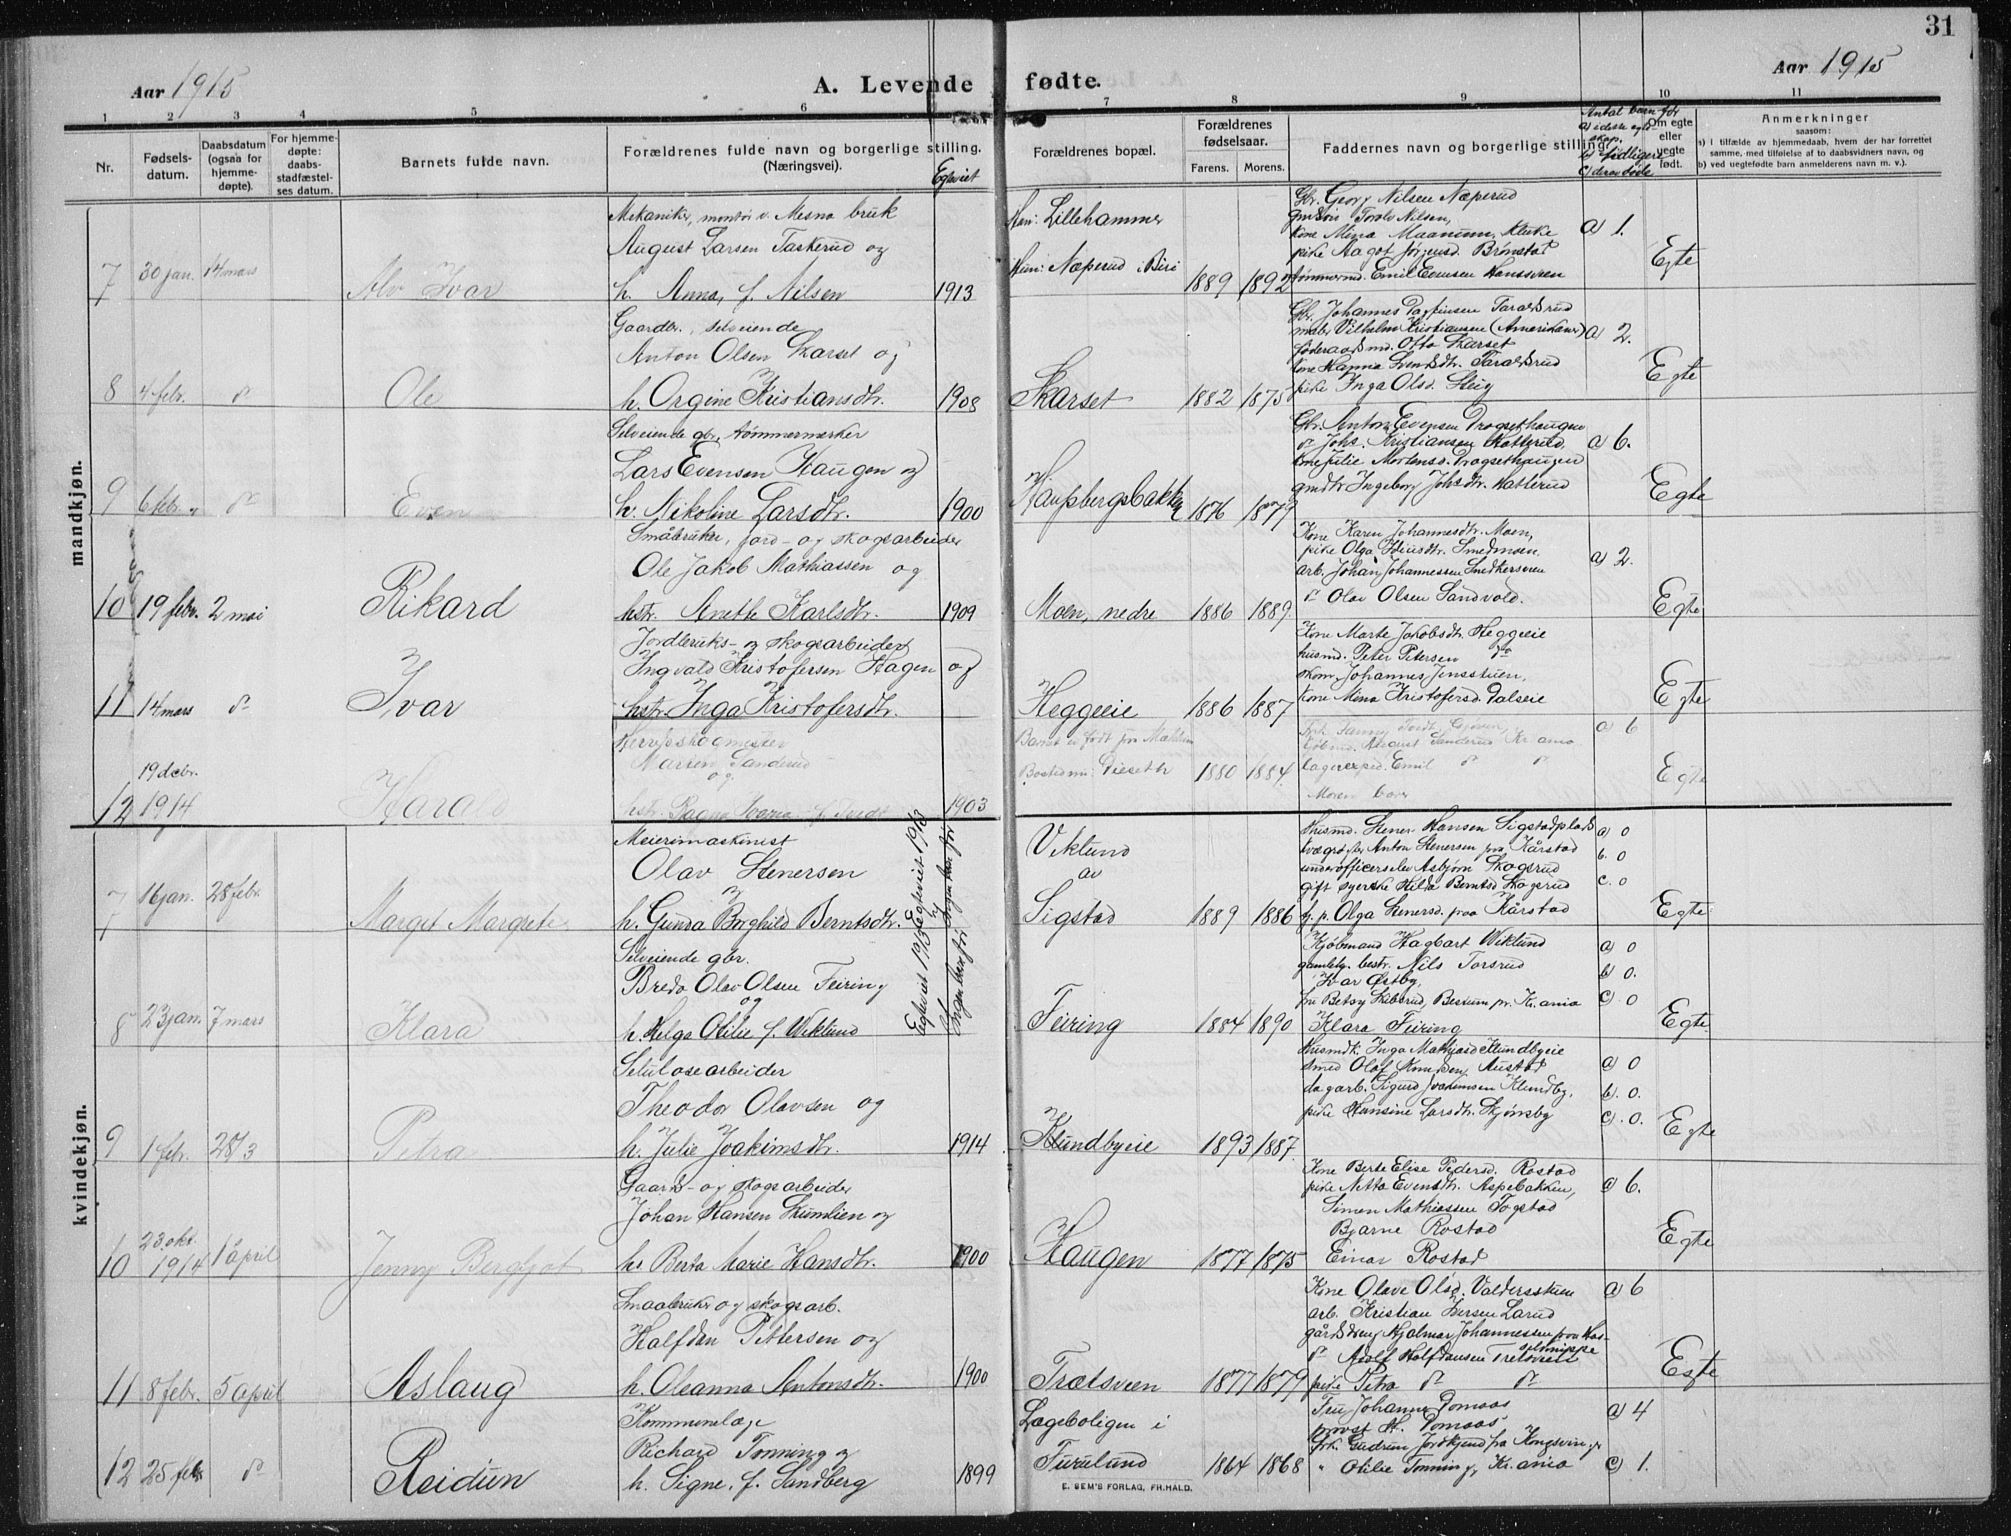 31
Aar 1915
A. Levende fødte.
Aar 1915
1 2 3 4 5 6 7 8 9 10 11
Nr.
Fødsels-
datum.
Daabsdatum
(ogsaa for
hjemme-
døpte).
For hjemme-
døpte:
daabs-
stadfæstel-
ses datum.
Barnets fulde navn.
Forældrenes fulde navn og borgerlige stilling.
(Næringsvei).
Egteviet
Forældrenes bopæl.
Forældrenes
fødselsaar.
Farens. Morens.
Faddernes navn og borgerlige stilling.
Antal barn før
a) i dette egte-
skap.
b) tidligere
c) derav døde
Om egte
eller
uegte
født.
Anmerkninger
saasom:
a) i tilfælde av hjemmedaab, hvem der har forrettet
samme, med tilføielse af to daabsvidners navn, og
b) ved uegtefødte barn anmelderens navn m. v.).
mandkjøn.
7 30 jan. 14 mars
Alv Ivar
Mekaniker, montør v. Mesna bruk
August Larsen Taskerud og
h. Anna, f. Nilsen 1913
Han: Lillehammer
Hun: Næperud i Biri
1889 1892
Gbr. Georg Nilsen Næperud
Torolv Nilsen,
kone Mina Maanum, Kluke
pike Aagot Jørgensd. Brønstad
tømmermd. Emil Evensen Hansveen
a) 1.
Egte
8 4 febr. do
Ole
Gaardbr., selveiende
Anton Olsen Skarset og
h. Orgine Kristiansdtr. 1908
Skarset
1882 1875
Gbr. Johannes Taraldsrud
Vilhelm Kristiansen (Amerikaner)
føderaadsmd. Otto Skarset
kone Hanna Svendsdtr. Taraldsrud
pike Inga Olsd. Steig
a) 2.
Egte
9 6 febr. do
Even
Selveiende gbr., tømmermerker
Lars Evensen Haugen og
h. Nikoline Larsdtr. 1900
1876 1877
Gbr. Anton Evensen Dragsethaugen
do Johs. Kristiansen Hatterud
kone Julie Mortensd. Dragsethaugen
gmdtr Ingeborg Johsdtr. Hatterud
a) 6.
Egte
10 19 febr. 2 mai
Rikard
Småbruker, jord- og skogsarbeider
Ole Jakob Mathiassen og
hstr. Anethe Karlsdtr. 1909
Moen, nedre
1886 1889.
Kone Karen Johannesdtr. Moen,
pike Olga Smedmoen.
arb. Johan Johannessen
do Olav Olsen Sandvold.
a) 2.
Egte
11 14 mars do
Ivar
Jordbruks- og skogsarbeider
Ingvald Kristofersen Hagen og
hstr. Inga Kristofersdtr.
Heggeeie
1886 1887
Kone Marte Jakobsdtr. Heggeeie
husmd. Peter Petersen do
skom. Johannes Jensstuen,
kone Mina Kristofersd. Dalseie
Egte
12 19 decbr. 1914
Harald
Herredsskogmester
Marten Sanderud
og
hstr. Ragna f. Tvedt 1903
Barnet er født
Bosted nu: Dieseth
1880 1884.
Frk. Fanny
August Sanderud Kr.ania
lagerexped. Emil do do
Moren bar
a) 6
Egte
kvindekjøn.
7 16 jan. 28 febr.
Margit Margrete
Meierimaskinist
Olav Stenersen
h. Gunda Borghild Berntsdtr.
Egteviet 1913
Ingen barn før
Viklund
av
Sigstad
1889 1886
Husmd. Stener Hansen Sigstadplads
Anton Stenersen paa Kårstad
underofficerselev Asbjørn Skogsrud
gift syerske Hilda Berntsd Skogsrud
g. p. Olga Stenersd. paa Kårstad
a) 0
b. 0
c. 0
Egte
8 23 jan. 7 mars
Klara
Selveiende gbr.
Bredo Olav Olsen Feiring
og
h. Helga Otilie f. Wiklund
Egteviet 1913
Ingen barn før
Feiring
1884 1890
Kjøbmand Hagbart Wiklund
bestr. Nils Torsrud
Ivar Østby,
fru Betsy Skiberud, Bestum pr. Kr.ania
Klara Feiring
a) 0
b) 0.
c) 0
Egte
9 1 febr. 28/3
Petra
Selulosearbeider
Theodor Olavsen og
h. Julie Joakimsdtr. 1914
Klundbyeie
1893 1887.
Inga Mathiasd Klundbyeie
smed Olaf Knudsen, Austad
dagarb. Sigurd Joakimsen Klundby,
pike Hansine Larsdtr. Skjønsby
a) 0
b. 0.
c). 0.
Egte
10 23 okt. 1914 1 april
Jenny Bergljot
Gaards- og skogsarbeider
Johan Hansen Skumlien og
h. Berta Marie Hansdtr. 1900
Haugen
1877 1875
Kone Berte Elise Pedersd. Rostad
pike Netta Evensdtr. Aspebakken,
Simen Mathiassen Fogstad
Bjarne Rostad
Einar Rostad
a) 6.
Egte
11 8 febr. 5 april
Aslaug
Smaabruker og skogsarb.
Halfdan Pettersen og
h. Oleanna Antonsdtr. 1900
Trætsveen
1877 1879
Kone Olave Olsd. Valdersstuen
arb. Kristian Iversen Larud
gårdsdreng Hjalmar Johannessen
do Adolf Halfdansen Tretsveen
pike Petra do do
a) 6
Egte
12 25 febr do
Reidun
Kommunelæge
Richard Tønning og
h. Signe, f. Sandberg 1899
Lægeboligen i
Furulund
1864 1868
Fru Johanne Domaas
provst H. Domaas
Frk. Gudrun
" Otilie Tønning, Kr.ania
a) 4
c) 1.
E. SEM'S FORLAG, FR.HALD.